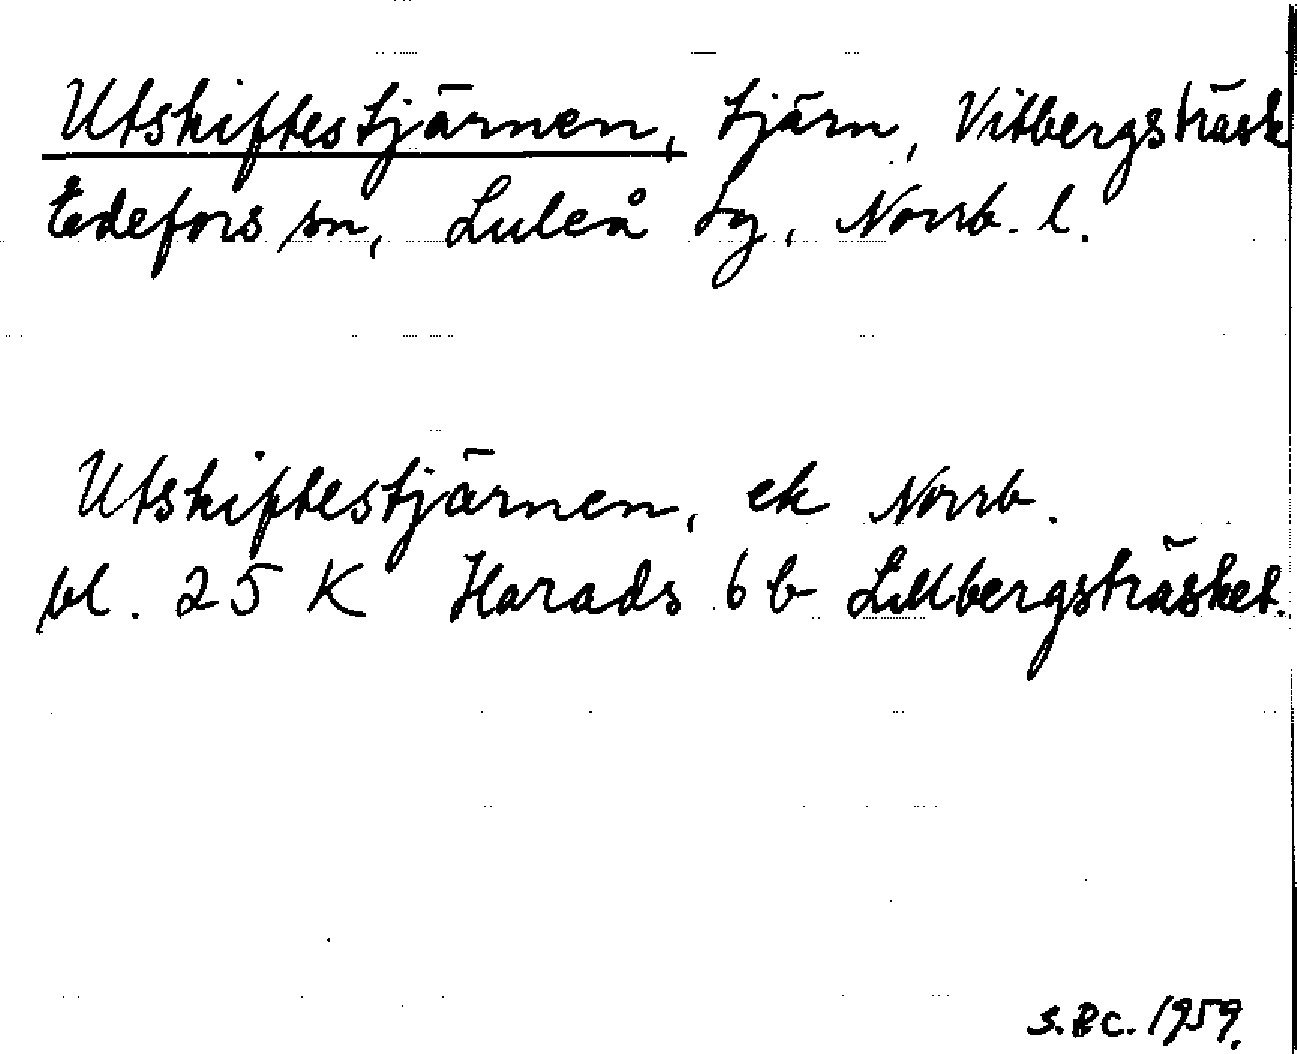 Utskiftestjärnen, tjärn, Vitbergsträsk
Edefors sn, Luleå tg, Norrb. l.
Utskiftestjärnen, ek Norrb.
bl. 25 K Harads 6 b Lillbergsträsket.
S.BC. 1959.